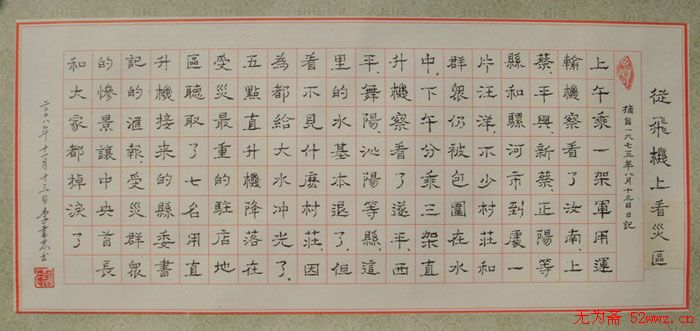 從飛機上看災區
摘自一九七五年八月十三日日記
上午乘一架軍用運
輸機察看了汝南、上
蔡、平輿、新蔡、正陽等
縣和騾河市、到處一
片汪洋、不少村莊和
群衆仍被包圍在水
中、下午分乘三架直
升機察看了遂平、西
平、舞陽、沁陽等縣、這
里的水基本退了、但
看不見什麼村莊、因
為都給大水沖光了、
五點直升機降落在
受災最重的駐店地
區聽取了七名用直
升機接来的縣委書
記的滙報、受災群衆
的慘景讓中央首長
和大家都掉淚了
二〇〇八年十一月十三日李書
无为斋 52wwz.cn